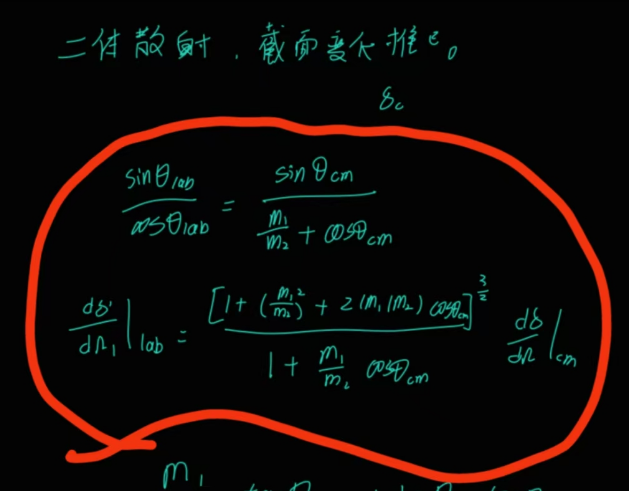 二体散射，截面变个推已。
δc
sinθlab / cosθlab = sinθcm / (m₁/m₂ + cosθcm)
dδ'/dΩ₁ |lab = [1 + (m₁/m₂)² + 2(m₁/m₂) cosθcm]^(3/2) / (1 + m₁/m₂ cosθcm) dδ/dΩ |cm
m₁